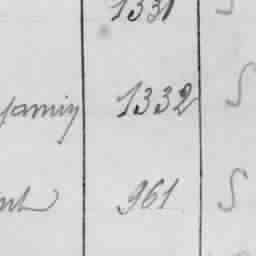 1331 S
jamin 1332 S
961 S